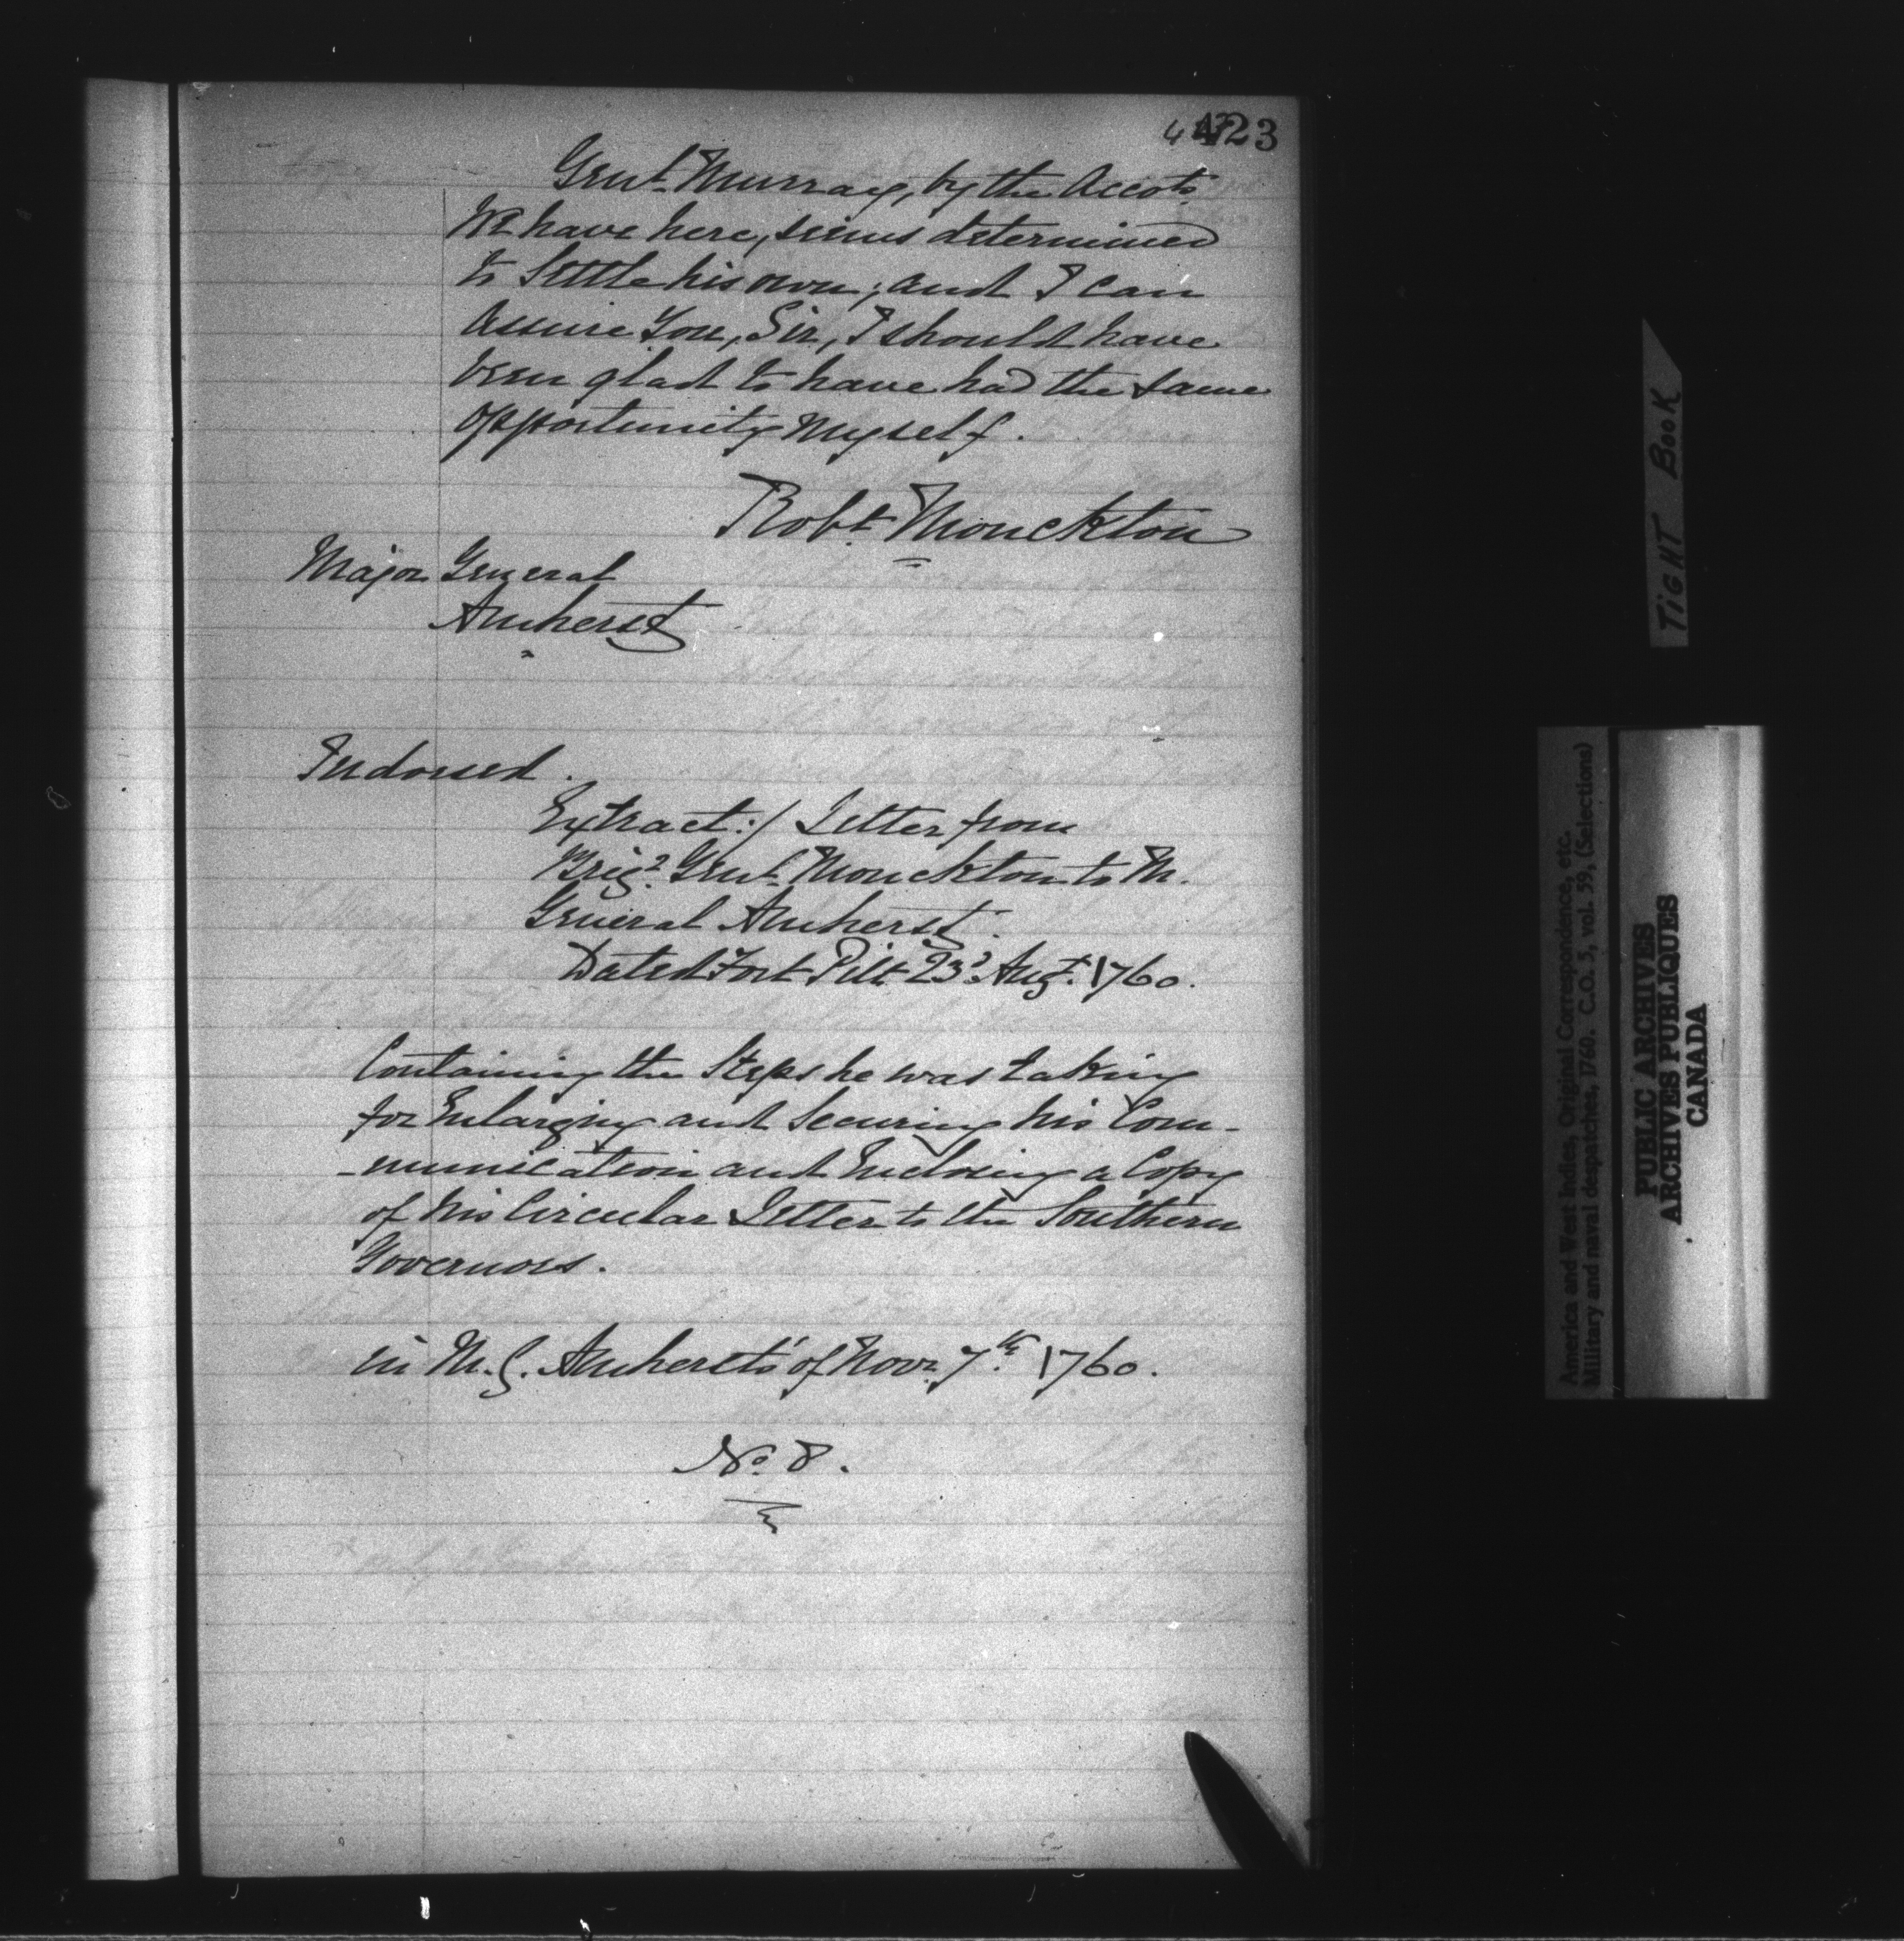 423
Genl. Murray, by the Accots.
We have here, seems determined
to Settle his own; and I can
Assure You, Sir, I should have
been glad to have had the same
opportunity Myself.
Robt. Monckton
Major General
Amherst
Indorsed.
Extract:/ Letter from
Brigr. Genl. Monckton to M.
General Amherst.
Dated Fort Pitt 23d. Augt. 1760.
Containing the Steps he was taking
for Enlarging and Securing his Com-
-munication and Inclosing a Copy
of his Circular Letter to the Southern
Governors.
in M. G. Amherst's of Novr. 7th. 1760.
No. 8.
TIGHT BOOK
America and West Indies, Original Correspondence, etc.
Military and naval despatches, 1760. C.O. 5, vol. 59, (Selections)
PUBLIC ARCHIVES
ARCHIVES PUBLIQUES
CANADA